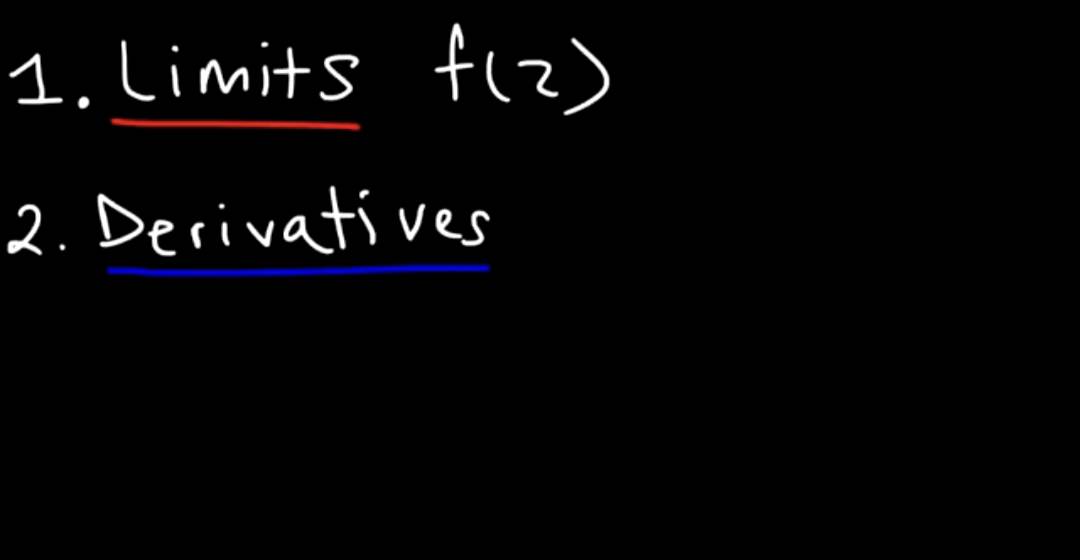 1. Limits f(2)
2. Derivatives